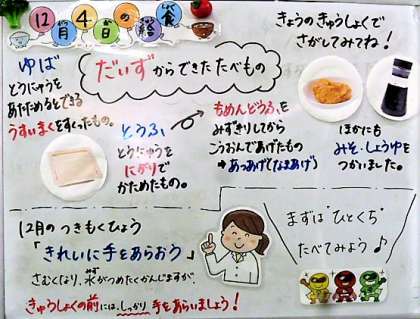 12月4日の給食
きょうのきゅうしょくで
さがしてみてね！
だいずからできたたべもの
ゆば
とうにゅうを
あたためるとできる
うすいまくをすくったもの。
とうふ
とうにゅうを
にがりで
かためたもの。
もめんどうふを
みずきりしてから
こうおんであげたもの
⇒あつあげ(なまあげ)
ほかにも
みそ・しょうゆを
つかいました。
12月のつきもくひょう
「きれいに手をあらおう」
さむくなり、水がつめたくかんじますが、
きゅうしょくの前には、しっかり手をあらいましょう！
まずは"ひとくち"
たべてみよう♪